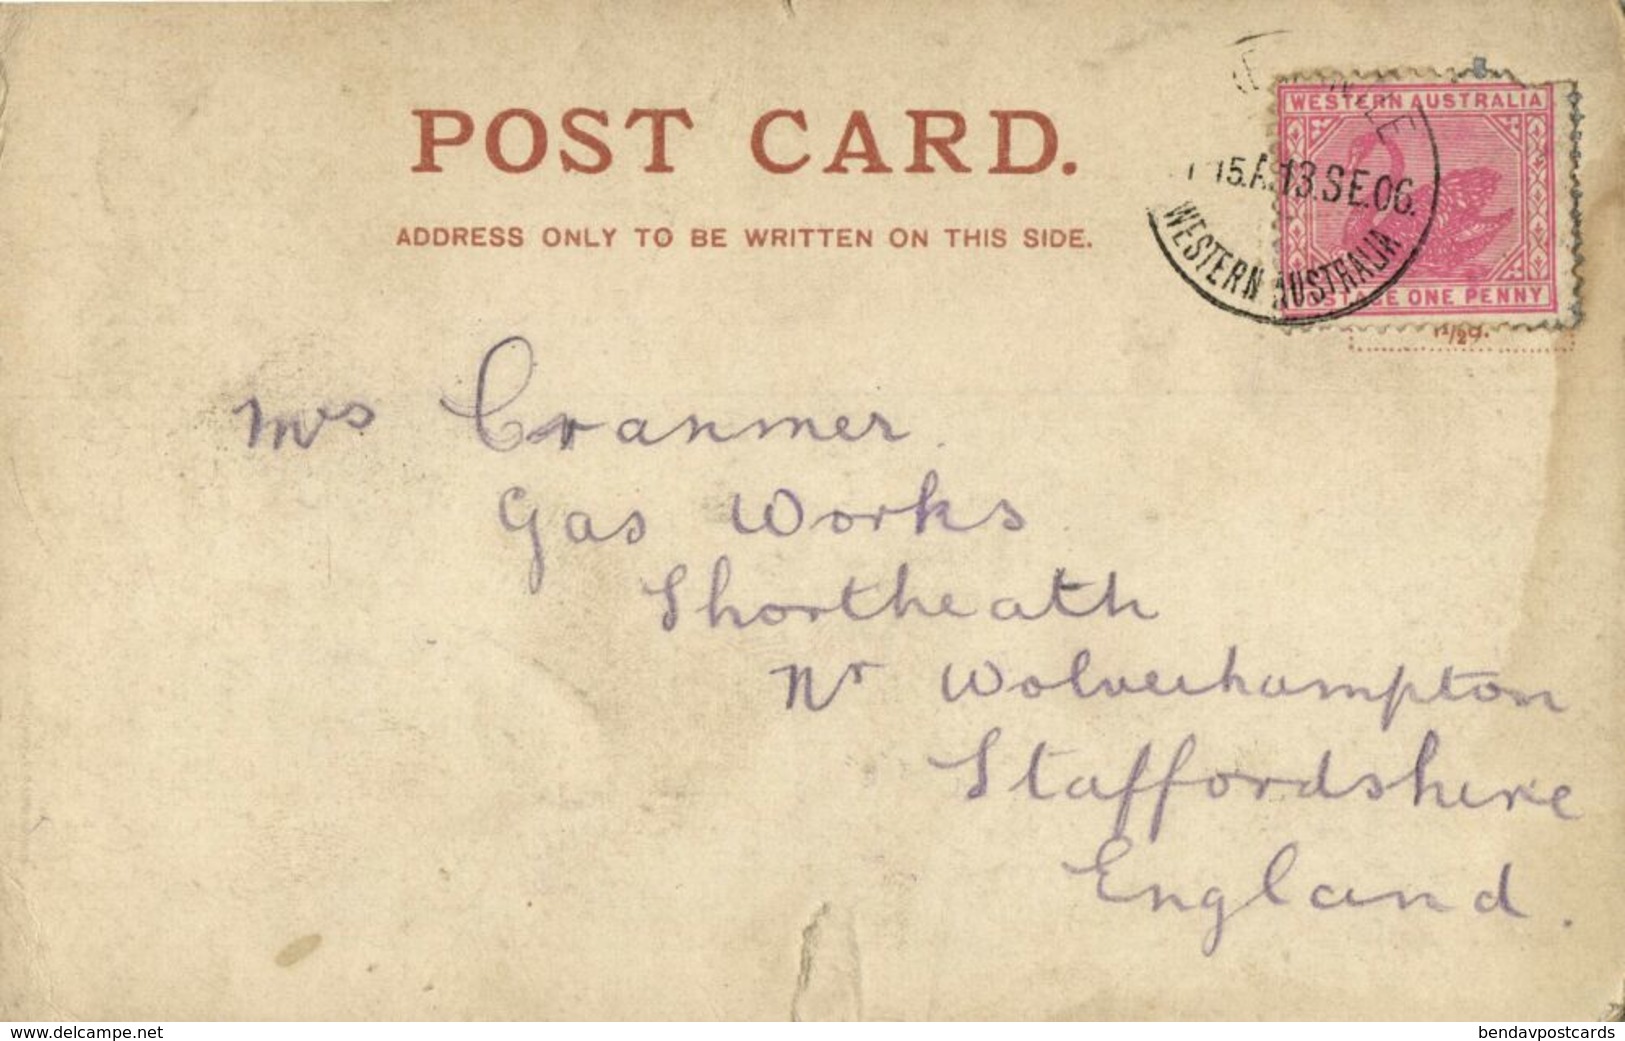 POST CARD.
ADDRESS ONLY TO BE WRITTEN ON THIS SIDE.
WESTERN AUSTRALIA
15.A. 13.SE.06.
WESTERN AUSTRALIA
POSTAGE ONE PENNY
1½d.
Mrs Cranmer.
Gas Works
Shortheath
Nr Wolverhampton
Staffordshire
England.
www.delcampe.net
bendavpostcards